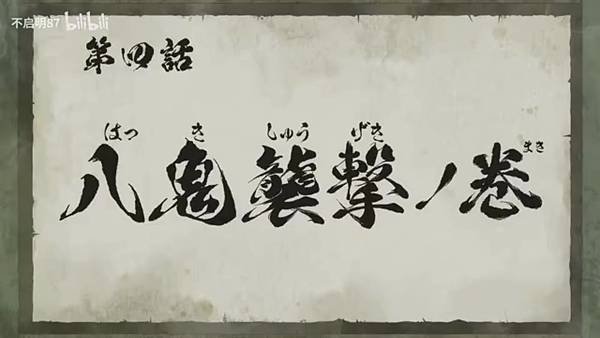 不启明87 bilibili
第四話
はっ き しゅう げき まき
八鬼襲撃ノ巻